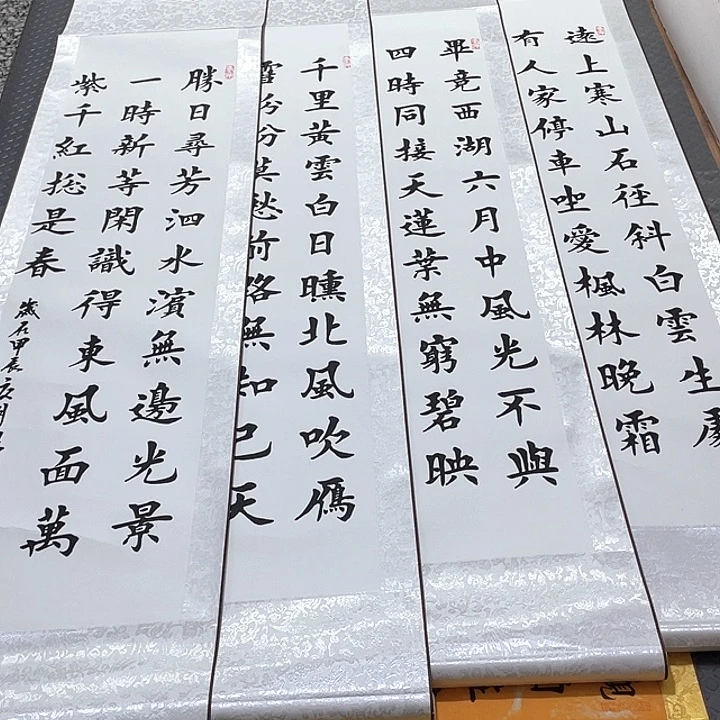 遠上寒山石徑斜白雲生處
有人家停車坐愛楓林晚霜
畢竟西湖六月中風光不與
四時同接天蓮葉無窮碧映
千里黃雲白日曛北風吹鴈
雪紛紛莫愁前路無知己天
勝日尋芳泗水濱無邊光景
一時新等閑識得東風面萬
紫千紅総是春
歲在甲辰